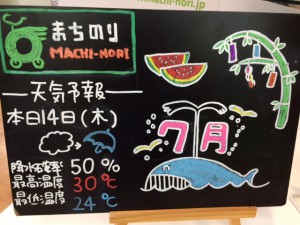 machi-nori.jp
まちのり
MACHI-NORI
天気予報
本日14日(木)
降水確率 50%
最高温度 30℃
最低温度 24℃
7月